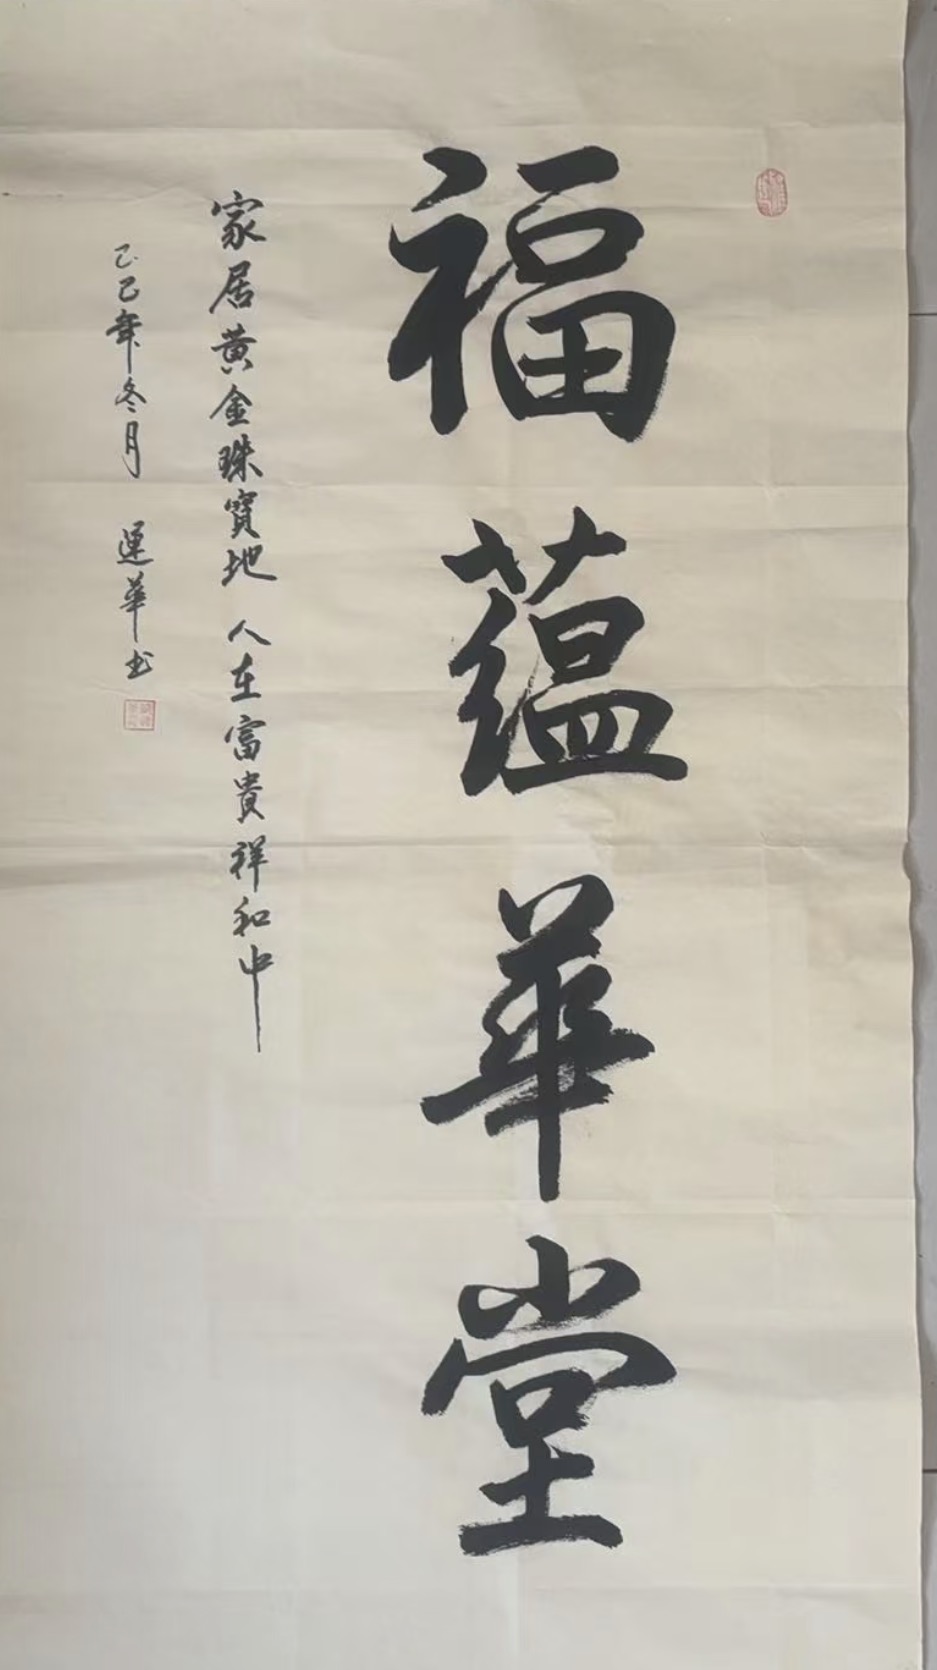 福蕴華堂
家居黄金珠寳地 人在富貴祥和中
乙巳年冬月 運華书